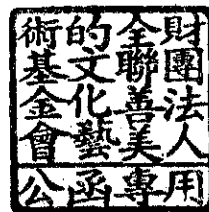 財團法人
全聯善美
的文化藝
術基金會
用專函公